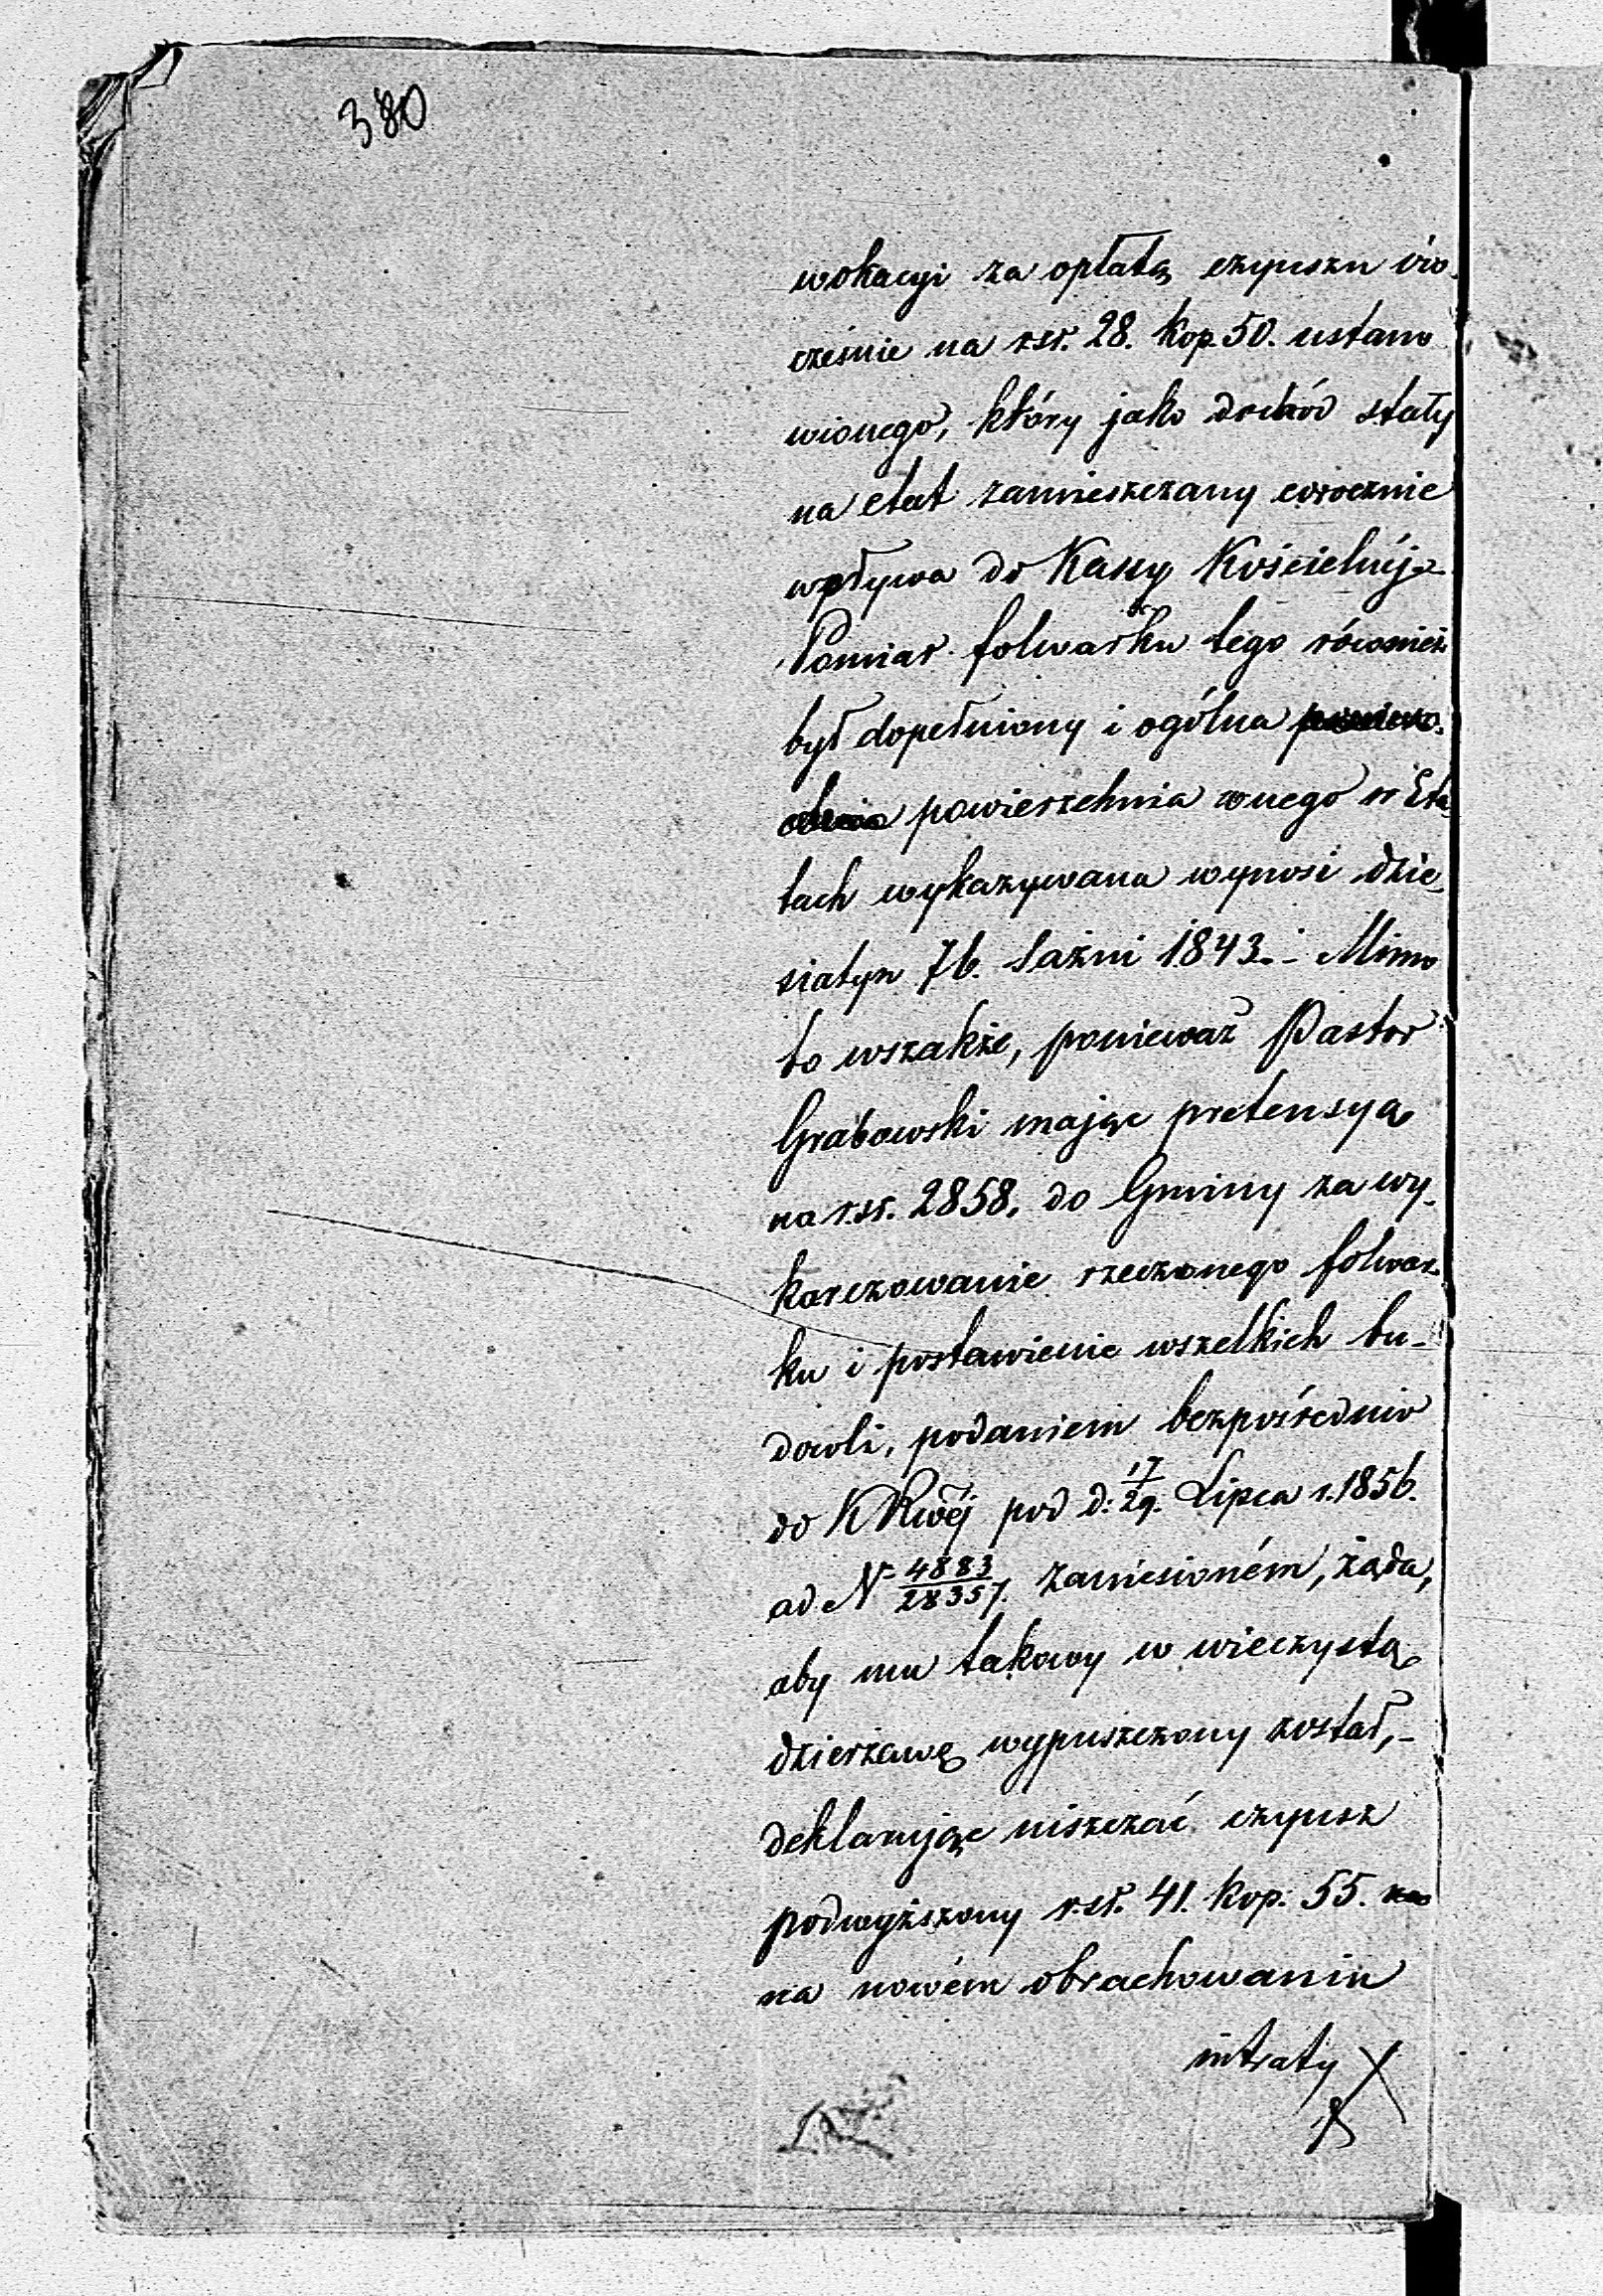 380
wokacyi za opłatą czynszu wó
cześnie na rsr. 28. kop. 50. ustano
wionego, który jako dochód stały
na etat zamieszczany corocznie
wpływa do Kassy Kościelnéj.
Pomiar folwarku tego również
był dopełniony i ogólna
powierzchnia onego w Eta
tach wykazywana wynosi dzie
siatyn 76. sążni 1843. - Mimo
to wszakże, ponieważ Pastor
Grabowski mając pretensyą
na rsr. 2858. do Gminy za wy-
karczowanie rzeczonego folwar-
ku i postawienie wszelkich bu-
dowli, podaniem bezpośrednio
do K R pod d: 17/29. Lipca r. 1856.
ad N 4883/28357. zaniesioném, żąda,
aby mu takowy w wieczystą
dzierżawę wypuszczony został,-
deklarując uiszczać czynsz
podwyższony rsr. 41. kop. 55.
na nowém obrachowaniu
intraty